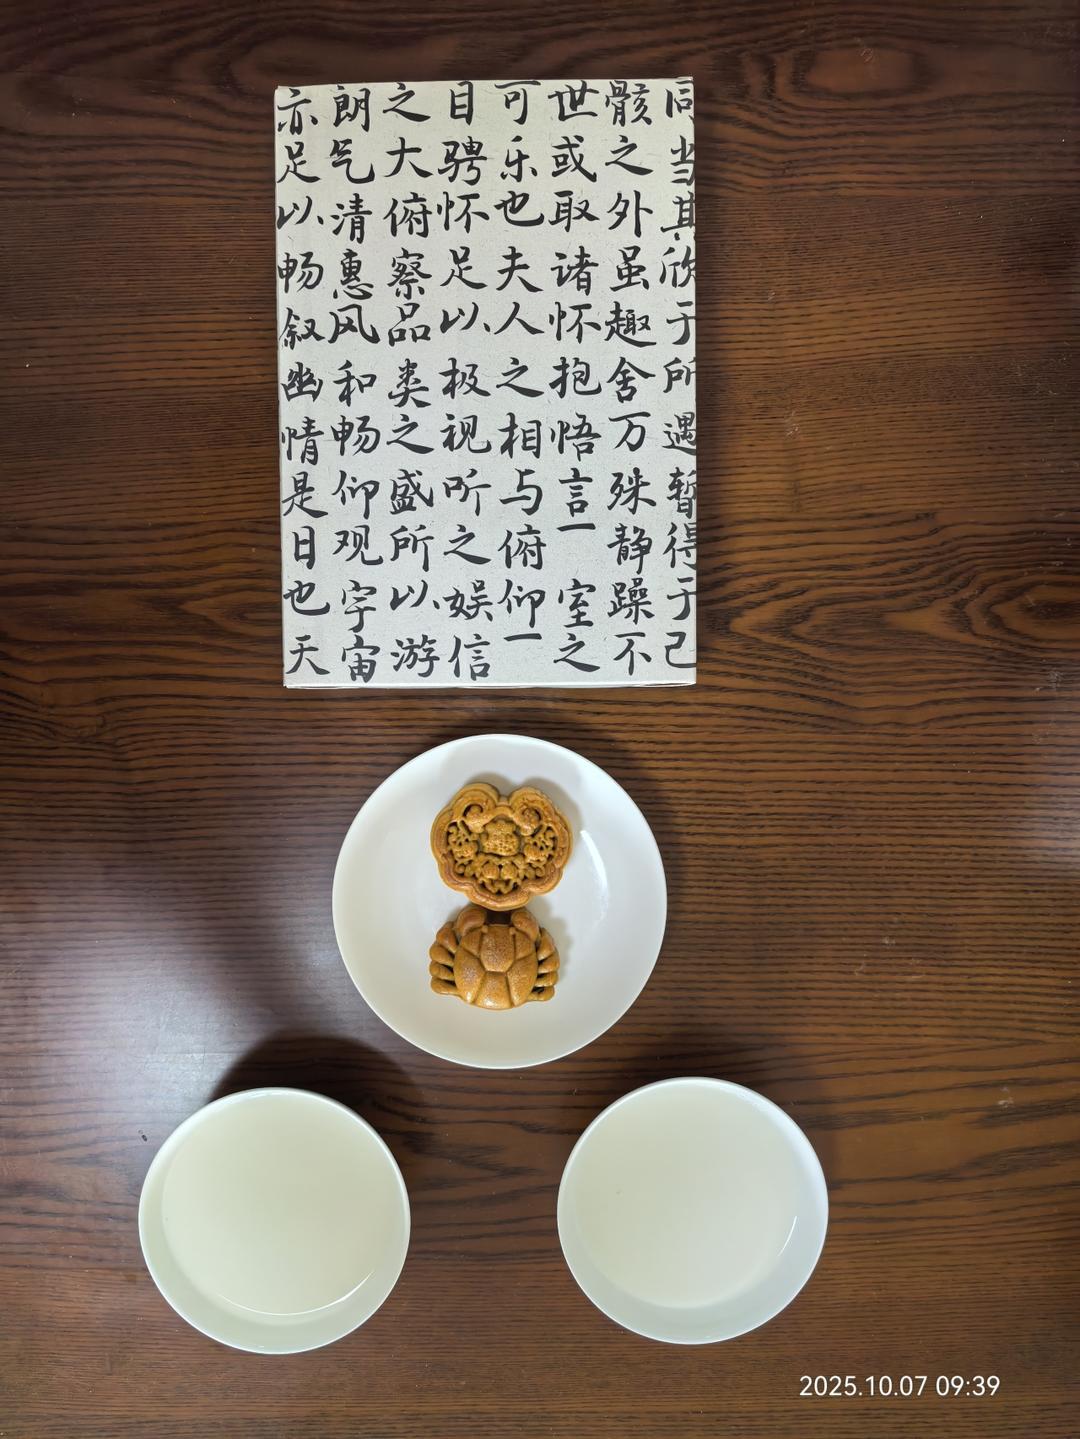 亦足以畅叙幽情是日也天
朗气清惠风和畅仰观宇宙
之大俯察品类之盛所以游
目骋怀足以极视听之娱信
可乐也夫人之相与俯仰一
世或取诸怀抱悟言一室之
骸之外虽趣舍万殊静躁不
同当其欣于所遇暂得于己
2025.10.07 09:39